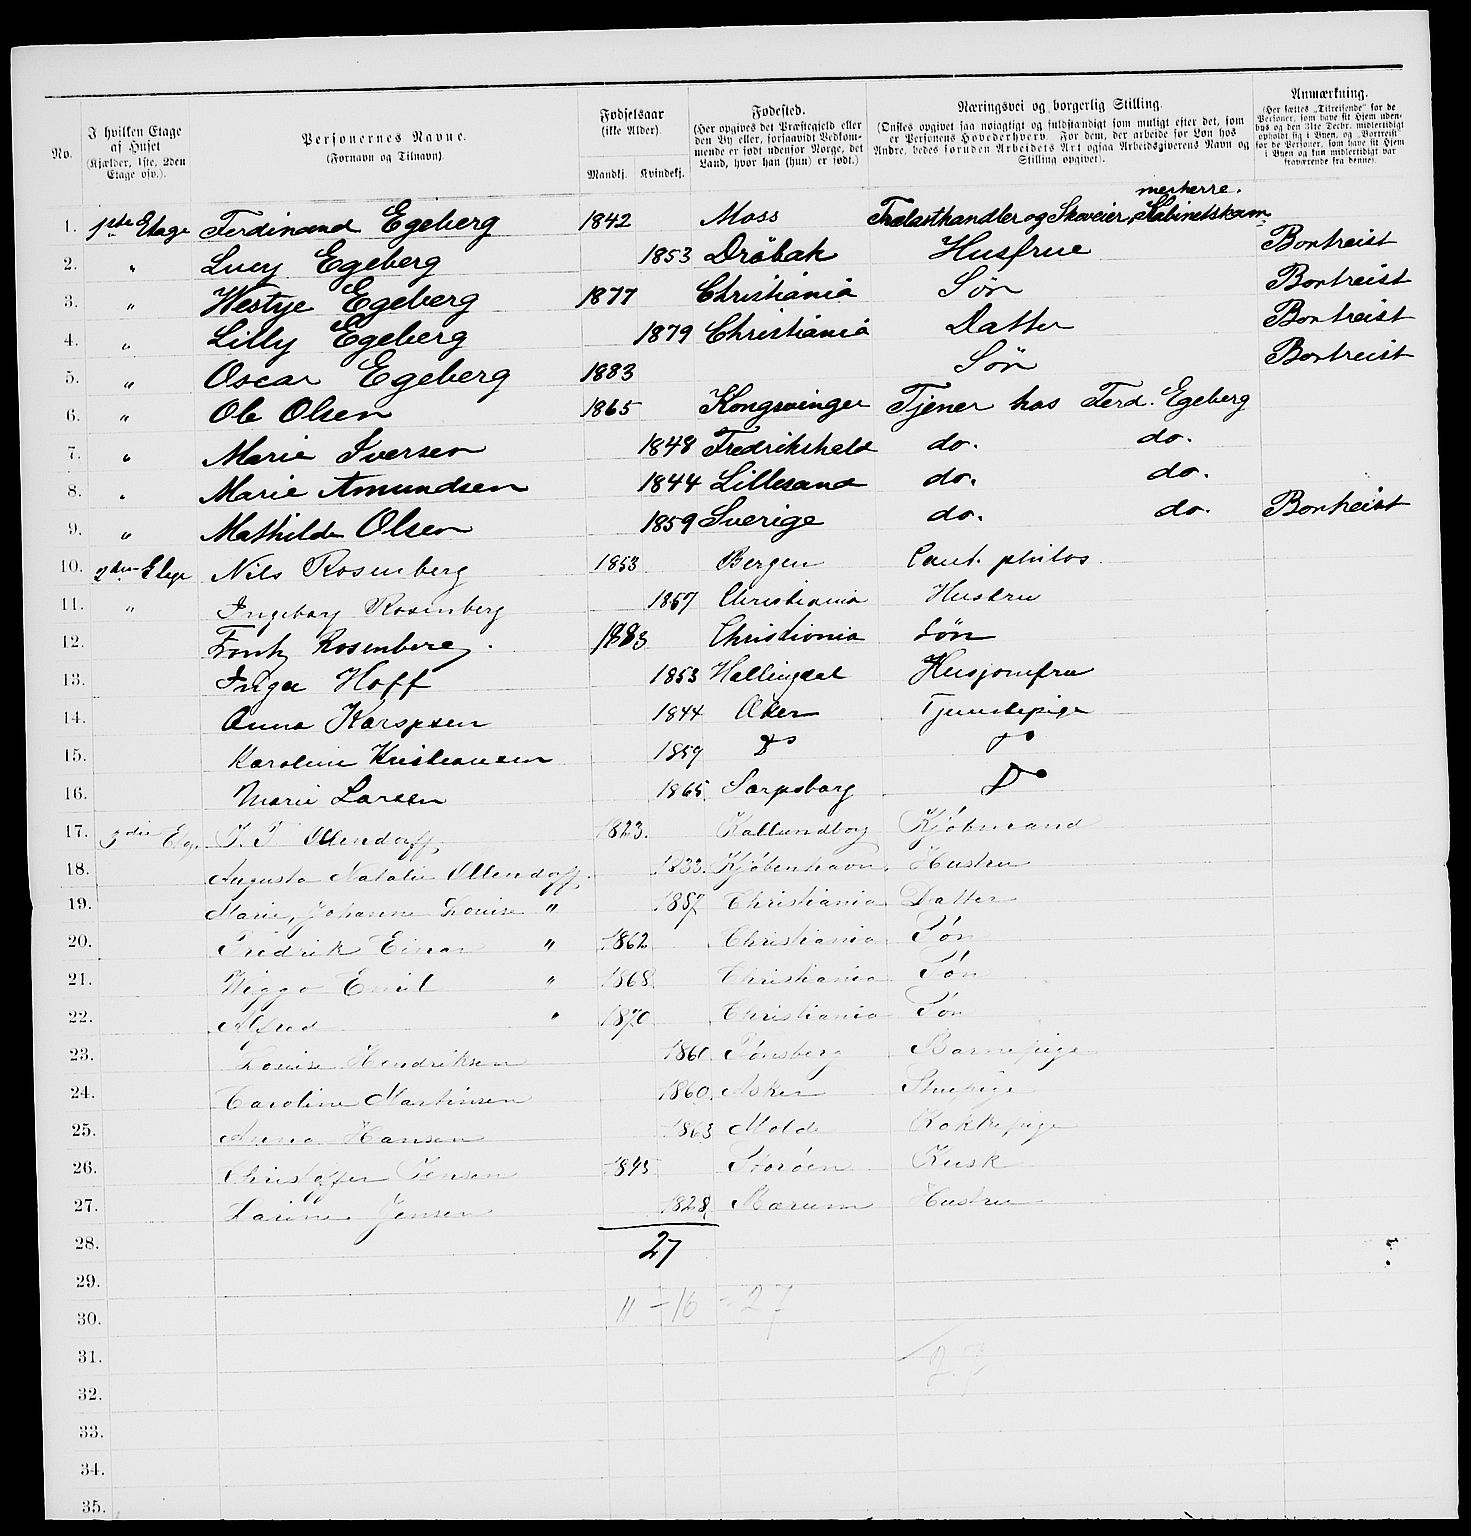 No.
I hvilken Etage af Huset (Kjælder, 1ste, 2den Etage osv.).
Personernes Navne. (Fornavn og Tilnavn).
Fødselsaar (ikke Alder). Mandkj. Kvindekj.
Fødested. (Her opgives det Præstegjeld eller den By eller, forsaavidt Vedkommende er født udenfor Norge, det Land, hvor han (hun) er født.)
Næringsvei og borgerlig Stilling. (Ønskes opgivet saa nøiagtigt og fuldstændigt som muligt efter det, som er Personens Hovederhverv. For dem, der arbeide for Løn hos Andre, bedes foruden Arbeidets Art ogsaa Arbeidsgiverens Navn og Stilling opgivet).
Anmærkning. (Her sættes „Tilreisende" for de Personer, som have sit Hjem udenbys og den 31te Decbr. midlertidigt opholdt sig i Byen, og „Bortreist" for de Personer, som have sit Hjem i Byen og kun midlertidigt var fraværende fra denne).
merherre.
1. 1ste Etage Ferdinand Egeberg 1842 Moss Trælasthandler og Skoveier, Kabinetskam-
2. " Lucy Egeberg 1853 Drøbak Husfrue Bortreist
3. " Westye Egeberg 1877 Christiania Søn Bortreist
4. " Lilly Egeberg 1879 Christiania Datter Bortreist
5. " Oscar Egeberg 1883 Søn Bortreist
6. " Ole Olsen 1865 Kongsvinger Tjener hos Ferd. Egeberg
7. " Marie Iversen 1848 Fredrikshald do. do.
8. " Marie Amundsen 1844 Lillesand do. do.
9. " Mathilde Olsen 1859 Sverige do. do. Bortreist
10. 2den Etage Nils Rosenberg 1853 Bergen Cant. philos.
11. " Ingeborg Rosenberg 1857 Christiania Hustru
12. Frntz Rosenberg. 1883 Christiania Søn
13. Inga Hoff 1853 Hallingdal Husjomfru
14. Anna Karspsen 1844 Aker Tjenestepige
15. Karoline Kristiansen 1859 Do Do
16. Marie Larsen 1865 Sarpsborg Do
17. 3die Etag. Ollendorff, 1823. Kallundborg Kjøbmand
18. Augusta Natalie Ollendorff, 1833. Kjøbenhavn. Hustru
19. Marie, Johanne Louise " 1857 Christiania Datter
20. Fredrik Einar " 1862 Christiania Søn
21. Wiggo Emil " 1868. Christiania Søn
22. Alfred " 1870 Christiania Søn
23. Louise Hendriksen 1860. Tønsberg Barnepige
24. Caroline Martinsen 1860. Asker Stuepige
25. Anna Hansen 1863 Molde Kokkepige
26. Christoffer Jensen Kusk
27. Jensen 1828, Bærum Hustru
28. 27
29.
30. 11 - 16 = 27
31. 27
32.
33.
34.
35.